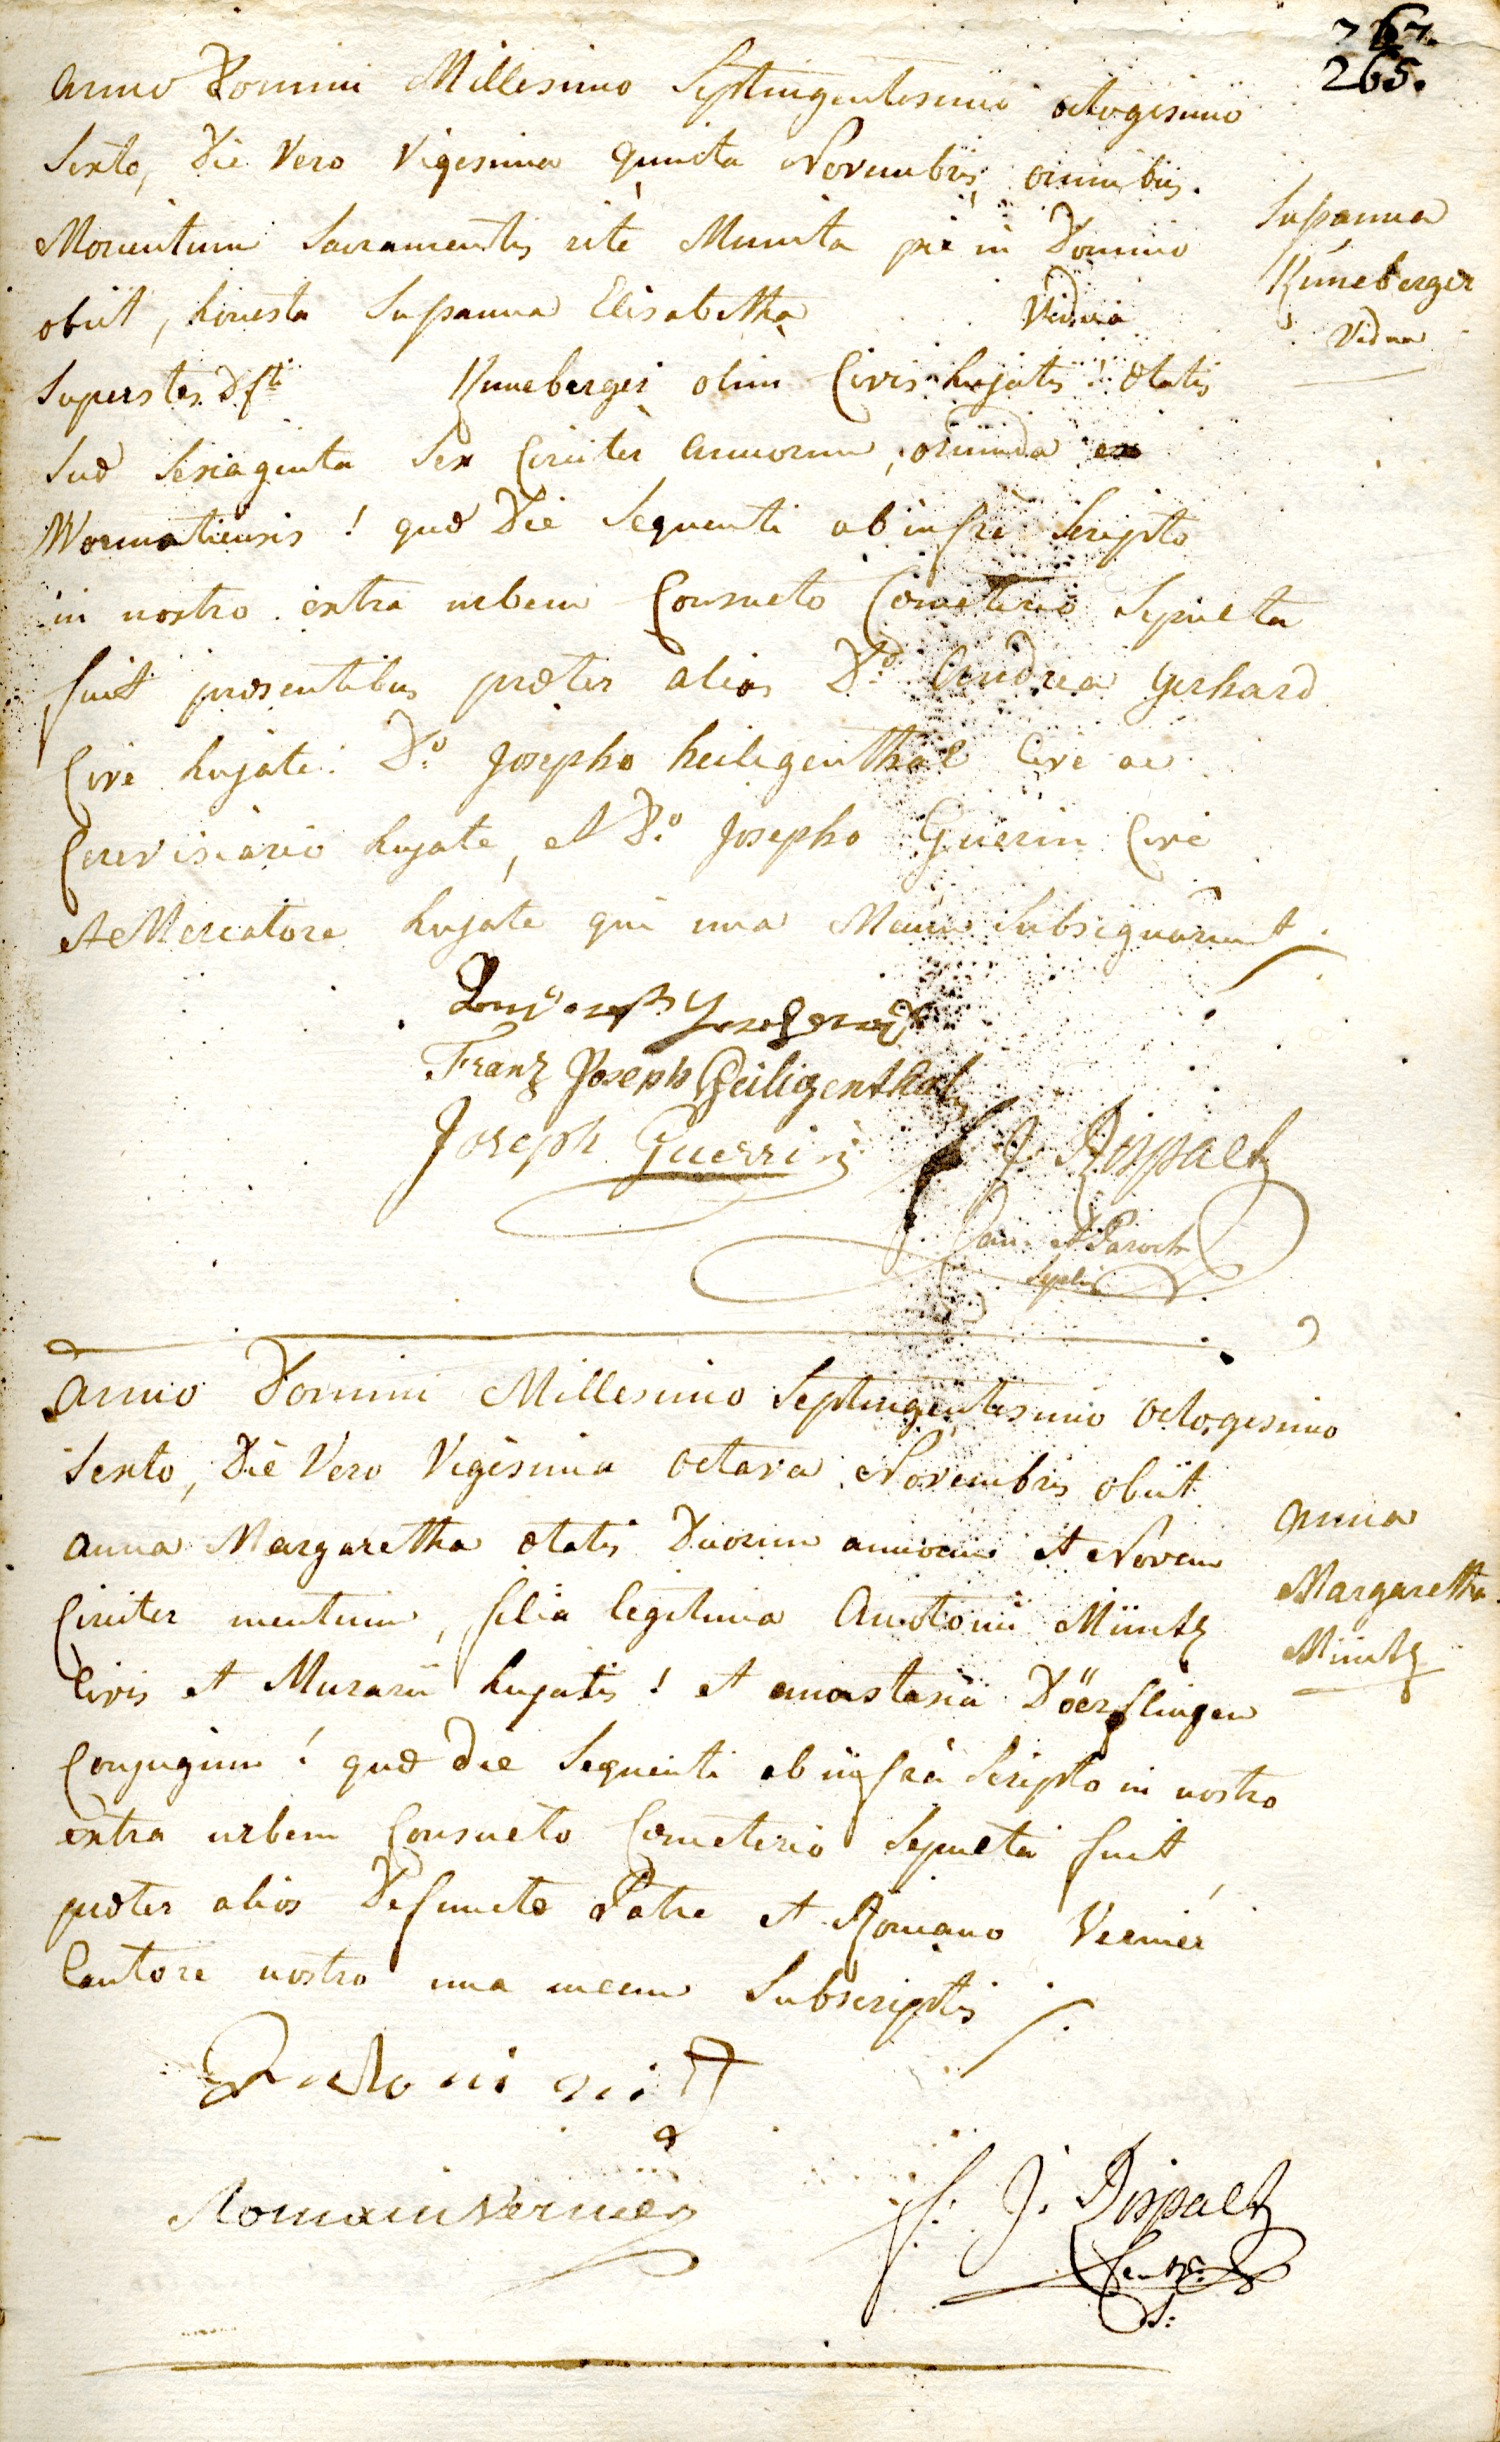 267.
265.
Anno Domini Millesimo Septingentesimo octogesimo
Sexto, Die Vero Vigesima quinta Novembris omnibus
Morientium Sacramentis rite Munita pie in Domino
obiit, honesta Susanna Elisabetha Vidua
Superstes Dfti Kuneberger olim Civis hujatis! ætatis
Suæ Sexaginta Sex Circiter annorum, oriunda ex
Wormatiensis! quæ Die Sequenti ab infra Scripto
in nostro extra urbem Consueto Cæmeterio Sepulta
fuit præsentibus præter alios Do. Andrea Gerhard
Cive hujate. Do. Josepho heiligenthal Cive ac
Cerevisiario hujate, et Do. Josepho Guerin Cive
et Mercatore hujate qui una Mecum Subsignarunt.
Susanna
Kuneberger
Vidua
Franz Joseph Heiligenthal
Joseph Guerrin
J Rispaltz
Can. et Paroch
Anno Domini Millesimo Septingentesimo octogesimo
Sexto, Die Vero Vigesima octava Novembris obiit
anna Margaretha ætatis Duorum annorum et Novem
Circiter mentium, filia legitima Anotonii Müntz
Civis et Murarii hujatis! et anastasia Döerflingen
Conjugum! quæ die Sequenti ab infrà Scripto in nostro
extra urbem Consueto Cæmeterio Sepulta fuit
præter alios Defunctæ Patre et Romano Vernier
Cantore nostro una mecum Subscriptis.
Anna
Margaretha
Müntz
Romain Vernier
f. J. Rispaltz